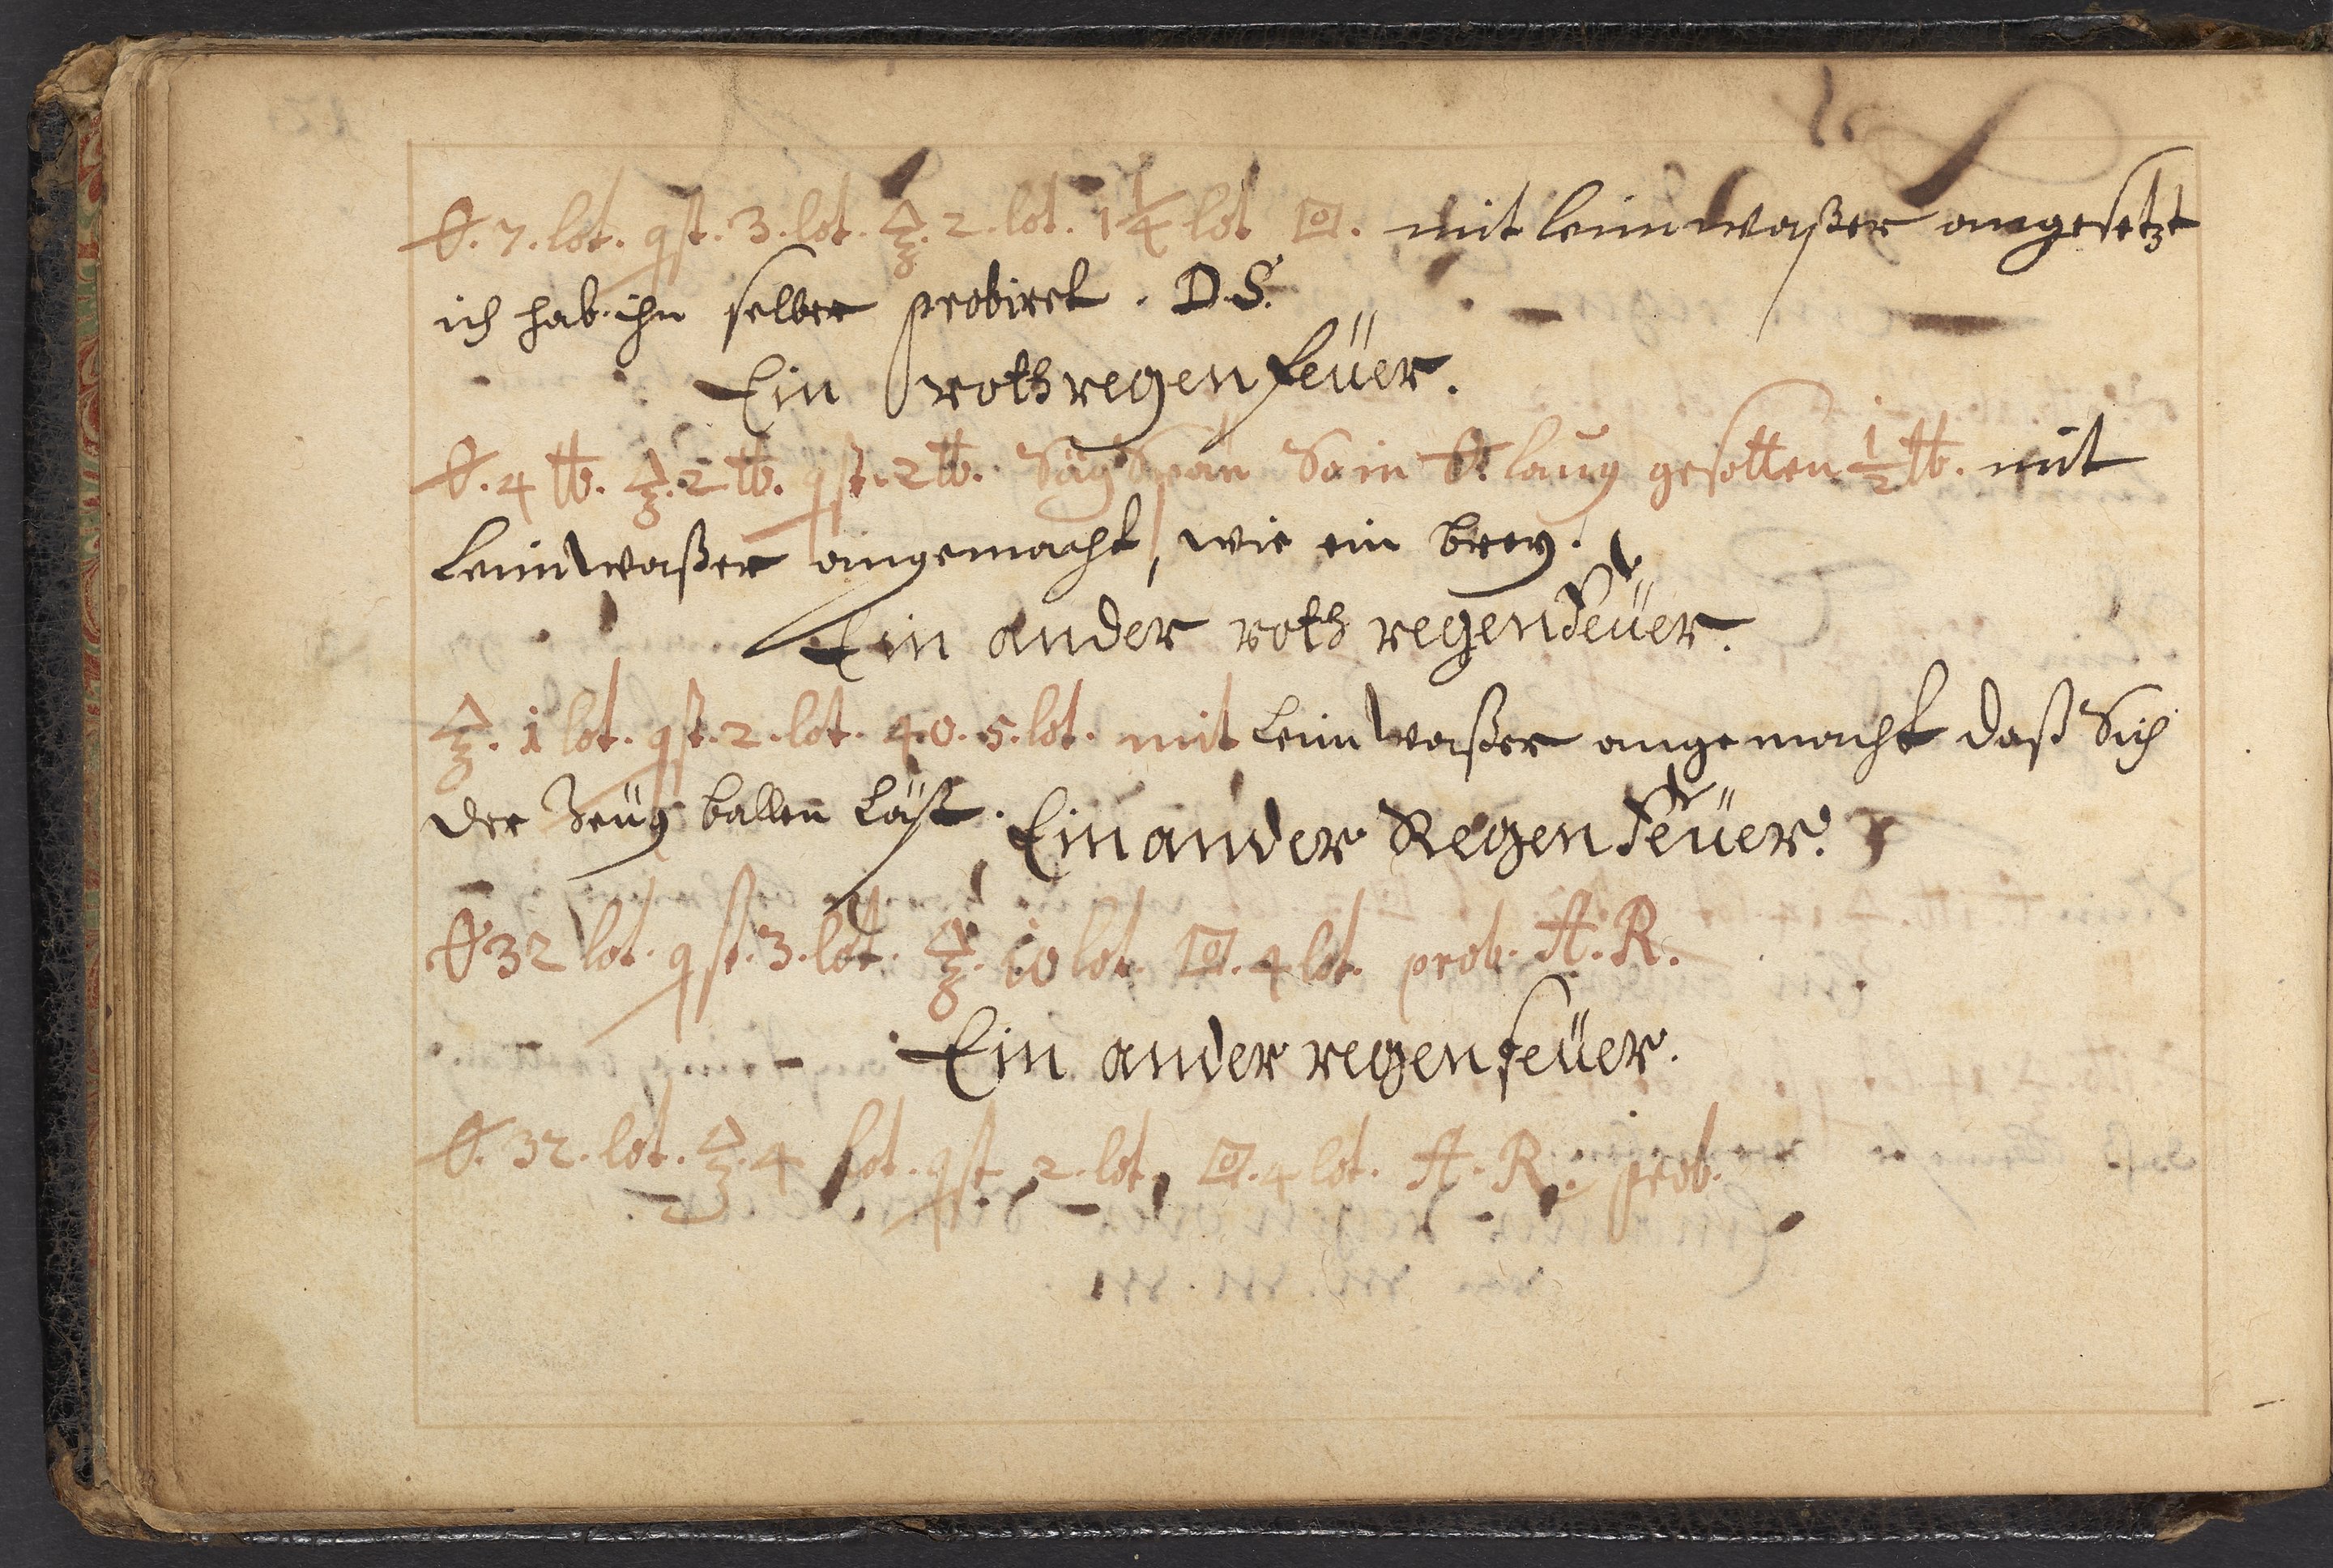 7. lot. qst. 3. lot. 2. lot. 1 1/4 lot mit leim waßer angesetzt
ich hab ihn selber probiret. D.S.
Ein roth regen feüer.
4 ℔. 2 ℔. qst. 2 ℔. Säg Span So in laug gesotten 1/2 ℔. mit
Leim waßer angemacht, wie ein brey.
Ein ander roth regen Feüer.
1 lot. qst. 2. lot. 5. lot. mit Leim waßer angemacht daß Sich
der Zeüg ballen läst. Ein ander Regen Feüer.
32 lot. qst. 3. lot. 10 lot. 4 lot. prob. A. R.
Ein ander regen feüer.
32. lot. 4 lot. qst 2. lot. 4 lot. A. R. prob.